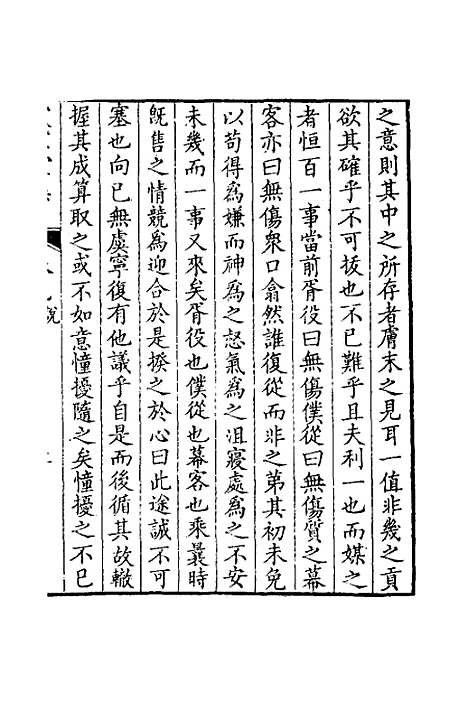 之意則其中之所存者膚末之見耳一值非幾之貢
欲其確乎不可拔也不已難乎且夫利一也而媒之
者恒百一事當前胥役曰無傷僕從曰無傷質之幕
客亦曰無傷衆口翕然誰復從而非之第其初未免
以苟得爲嫌而神爲之惄氣爲之沮寢處爲之不安
未幾而一事又來矣胥役也僕從也幕客也乘曩時
旣售之情競爲迎合於是揆之於心曰此途誠不可
塞也向已無虞寧復有他議乎自是而後循其故轍
握其成算取之或不如意憧擾隨之矣憧擾之不已
說